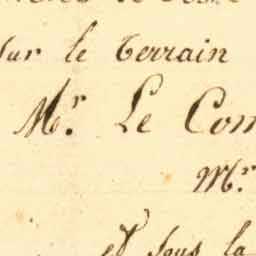 sur le terrain
Mr. Le Com
Mr.
et sous la